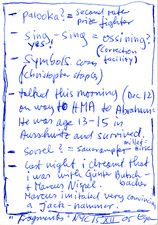 - palooka? = second rate
prize fighter
- sing-sing = ossining?
yes!! (correction
facility)
- Symbols.com
(christopher utopia)
- talked this morning (Dec 12)
on way to HMA to Abraham
He was age 13-15 in
Auschwitz and survived.
- sorrel? = sauerampfer
- last night i dreamt that
i was with Günter Butch-
bacher
+ Marcus Nispel.
Marcus imitated very convincing
a Jack-hammer.
"Fragments" NYC 15 XII